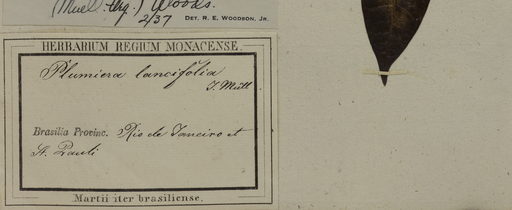 (Muell. Arg.) Woods.
2/37 DET. R. E. WOODSON, JR.
HERBARIUM REGIUM MONACENSE.
Plumiera lancifolia
J. Müll.
Brasilia Provinc. Rio de Janeiro et
St. Pauli
Martii iter brasiliense.